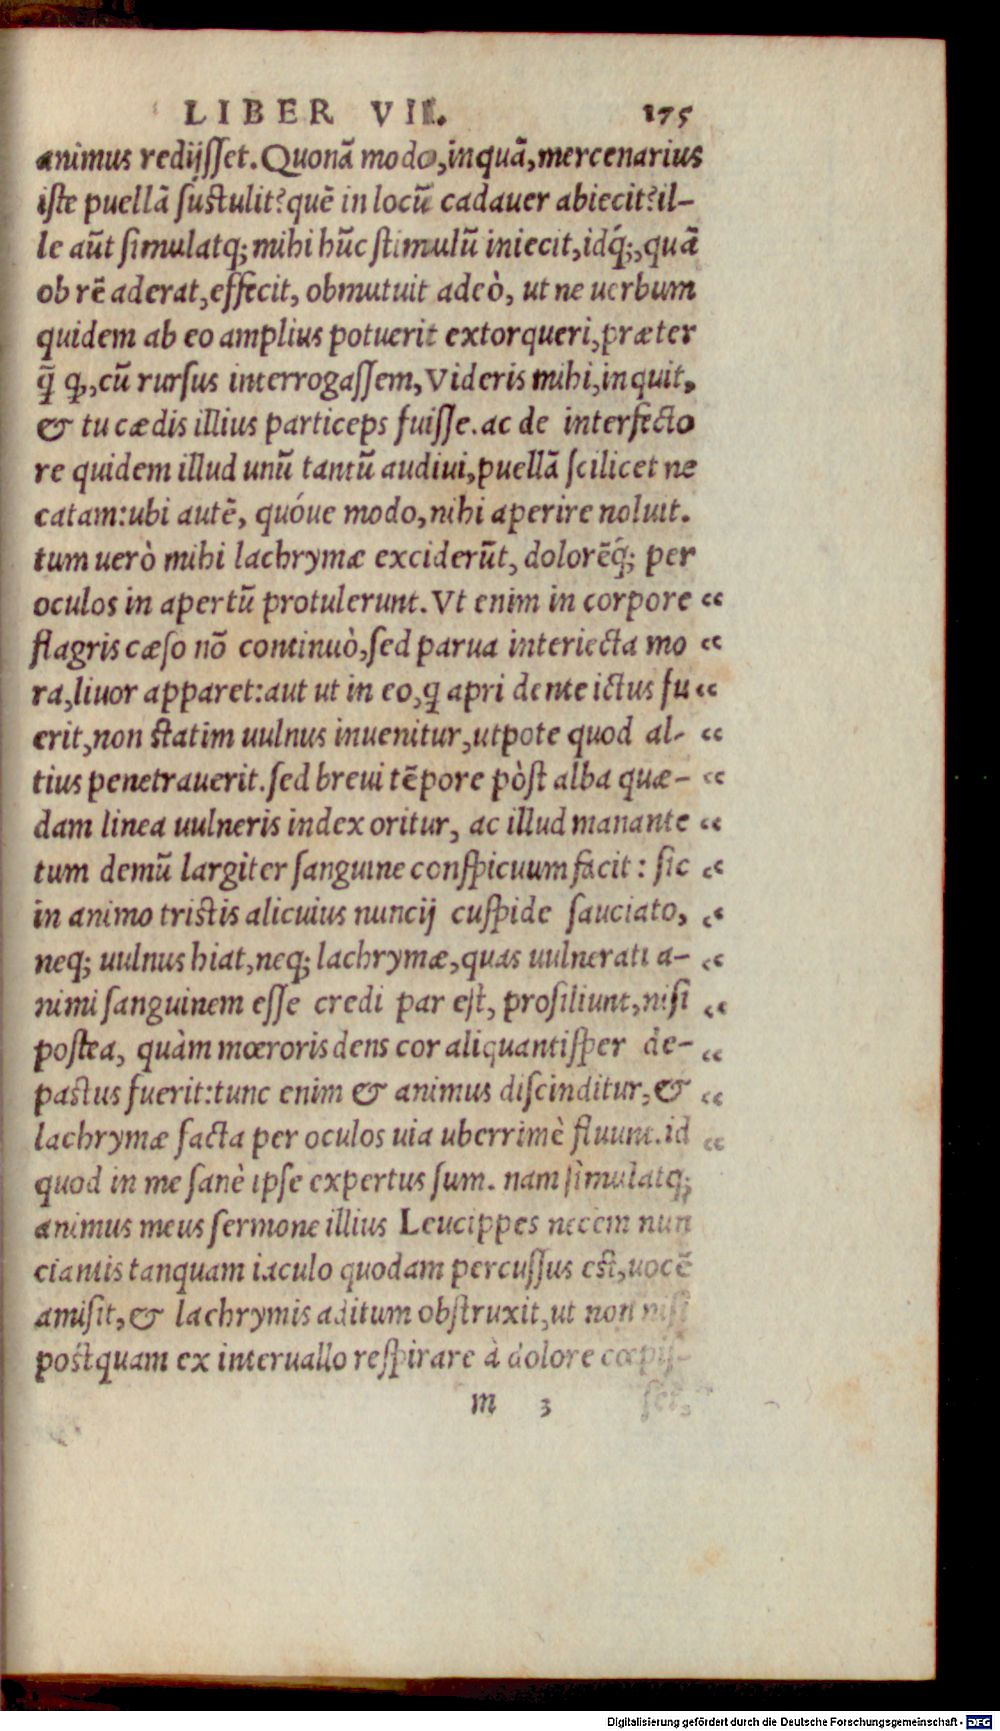 LIBER VII. 175
animus redijſſet. Quonã modo, inquã, mercenarius
iſte puellã ſuſtulit? quẽ in locũ cadauer abiecit? il-
le aũt ſimulatq; mihi hũc ſtimulũ iniecit, idq́;, quã
ob rẽ aderat, effecit, obmutuit adeò, ut ne uerbum
quidem ab eo amplius potuerit extorqueri, præter
q̃ ꝙ, cũ rurſus interrogaſſem, Videris mihi, inquit,
& tu cædis illius particeps fuiſſe. ac de interfecto
re quidem illud unũ tantũ audiui, puellã ſcilicet ne
catam: ubi autẽ, quóue modo, nihi aperire noluit.
tum uerò mihi lachrymæ exciderũt, dolorẽq́; per
oculos in apertũ protulerunt. Vt enim in corpore “
flagris cæſo nõ continuò, ſed parua interiecta mo “
ra, liuor apparet: aut ut in eo, q apri dente ictus fu “
erit, non ſtatim uulnus inuenitur, utpote quod al- “
tius penetrauerit. ſed breui tẽpore pòſt alba quæ- “
dam linea uulneris index oritur, ac illud manante “
tum demũ largiter ſanguine conſpicuum facit: ſic “
in animo triſtis alicuius nuncij cuſpide ſauciato, “
neq; uulnus hiat, neq; lachrymæ, quas uulnerati a- “
nimi ſanguinem eſſe credi par eſt, proſiliunt, niſi “
poſtea, quàm mœroris dens cor aliquantiſper de- “
paſtus fuerit: tunc enim & animus diſcinditur, & “
lachrymæ facta per oculos uia uberrimè fluunt. id “
quod in me ſanè ipſe expertus ſum. nam ſimulatq;
animus meus ſermone illius Leucippes necem nun
ciantis tanquam iaculo quodam percuſſus eſt, uocẽ
amiſit, & lachrymis aditum obſtruxit, ut non niſi
poſtquam ex interuallo reſpirare à dolore cœpiſ-
m 3 ſet,
Digitalisierung gefördert durch die Deutsche Forschungsgemeinschaft - DFG